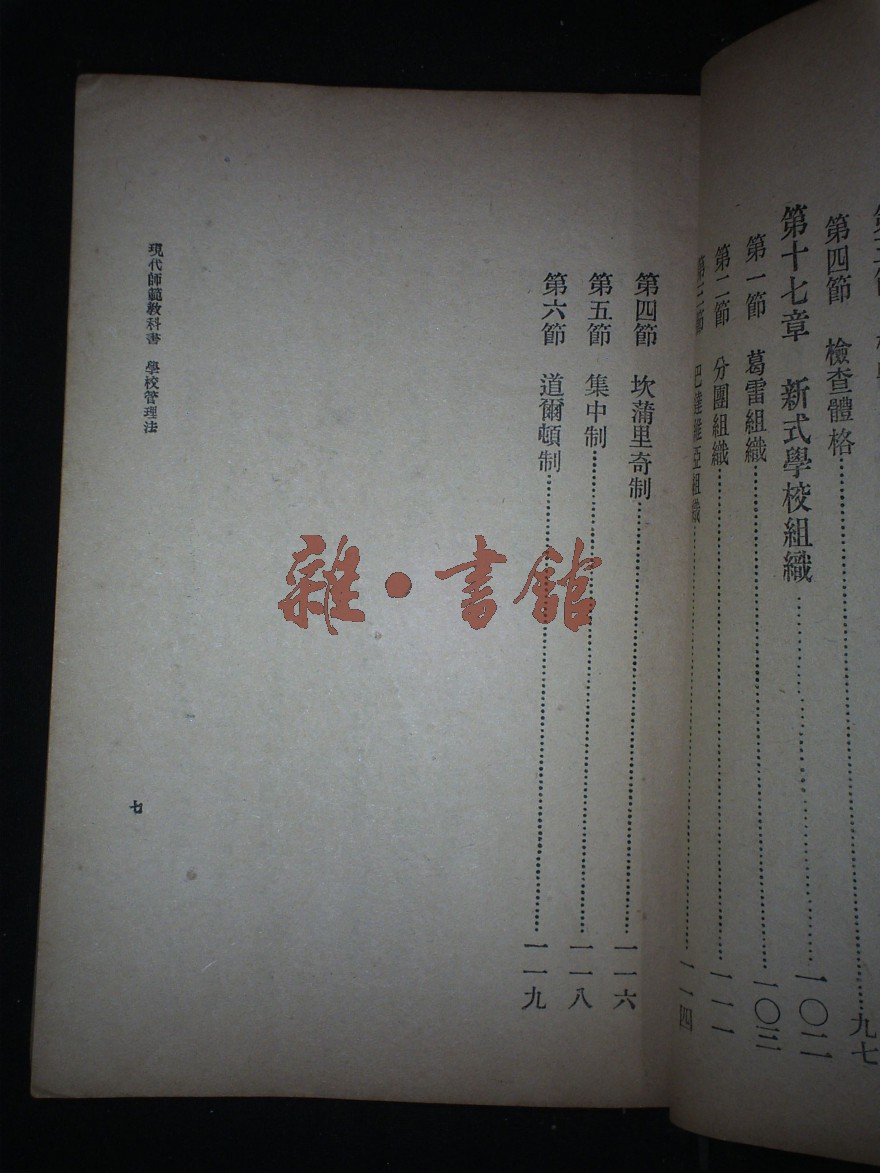 第四節　檢查體格……九七
第十七章　新式學校組織……一〇二
第一節　葛雷組織……一〇三
第二節　分團組織……一一一
第三節　巴達維亞組織……一一四
第四節　坎蒲里奇制……一一六
第五節　集中制……一一八
第六節　道爾頓制……一一九
現代師範教科書　學校管理法
七
雜·書館